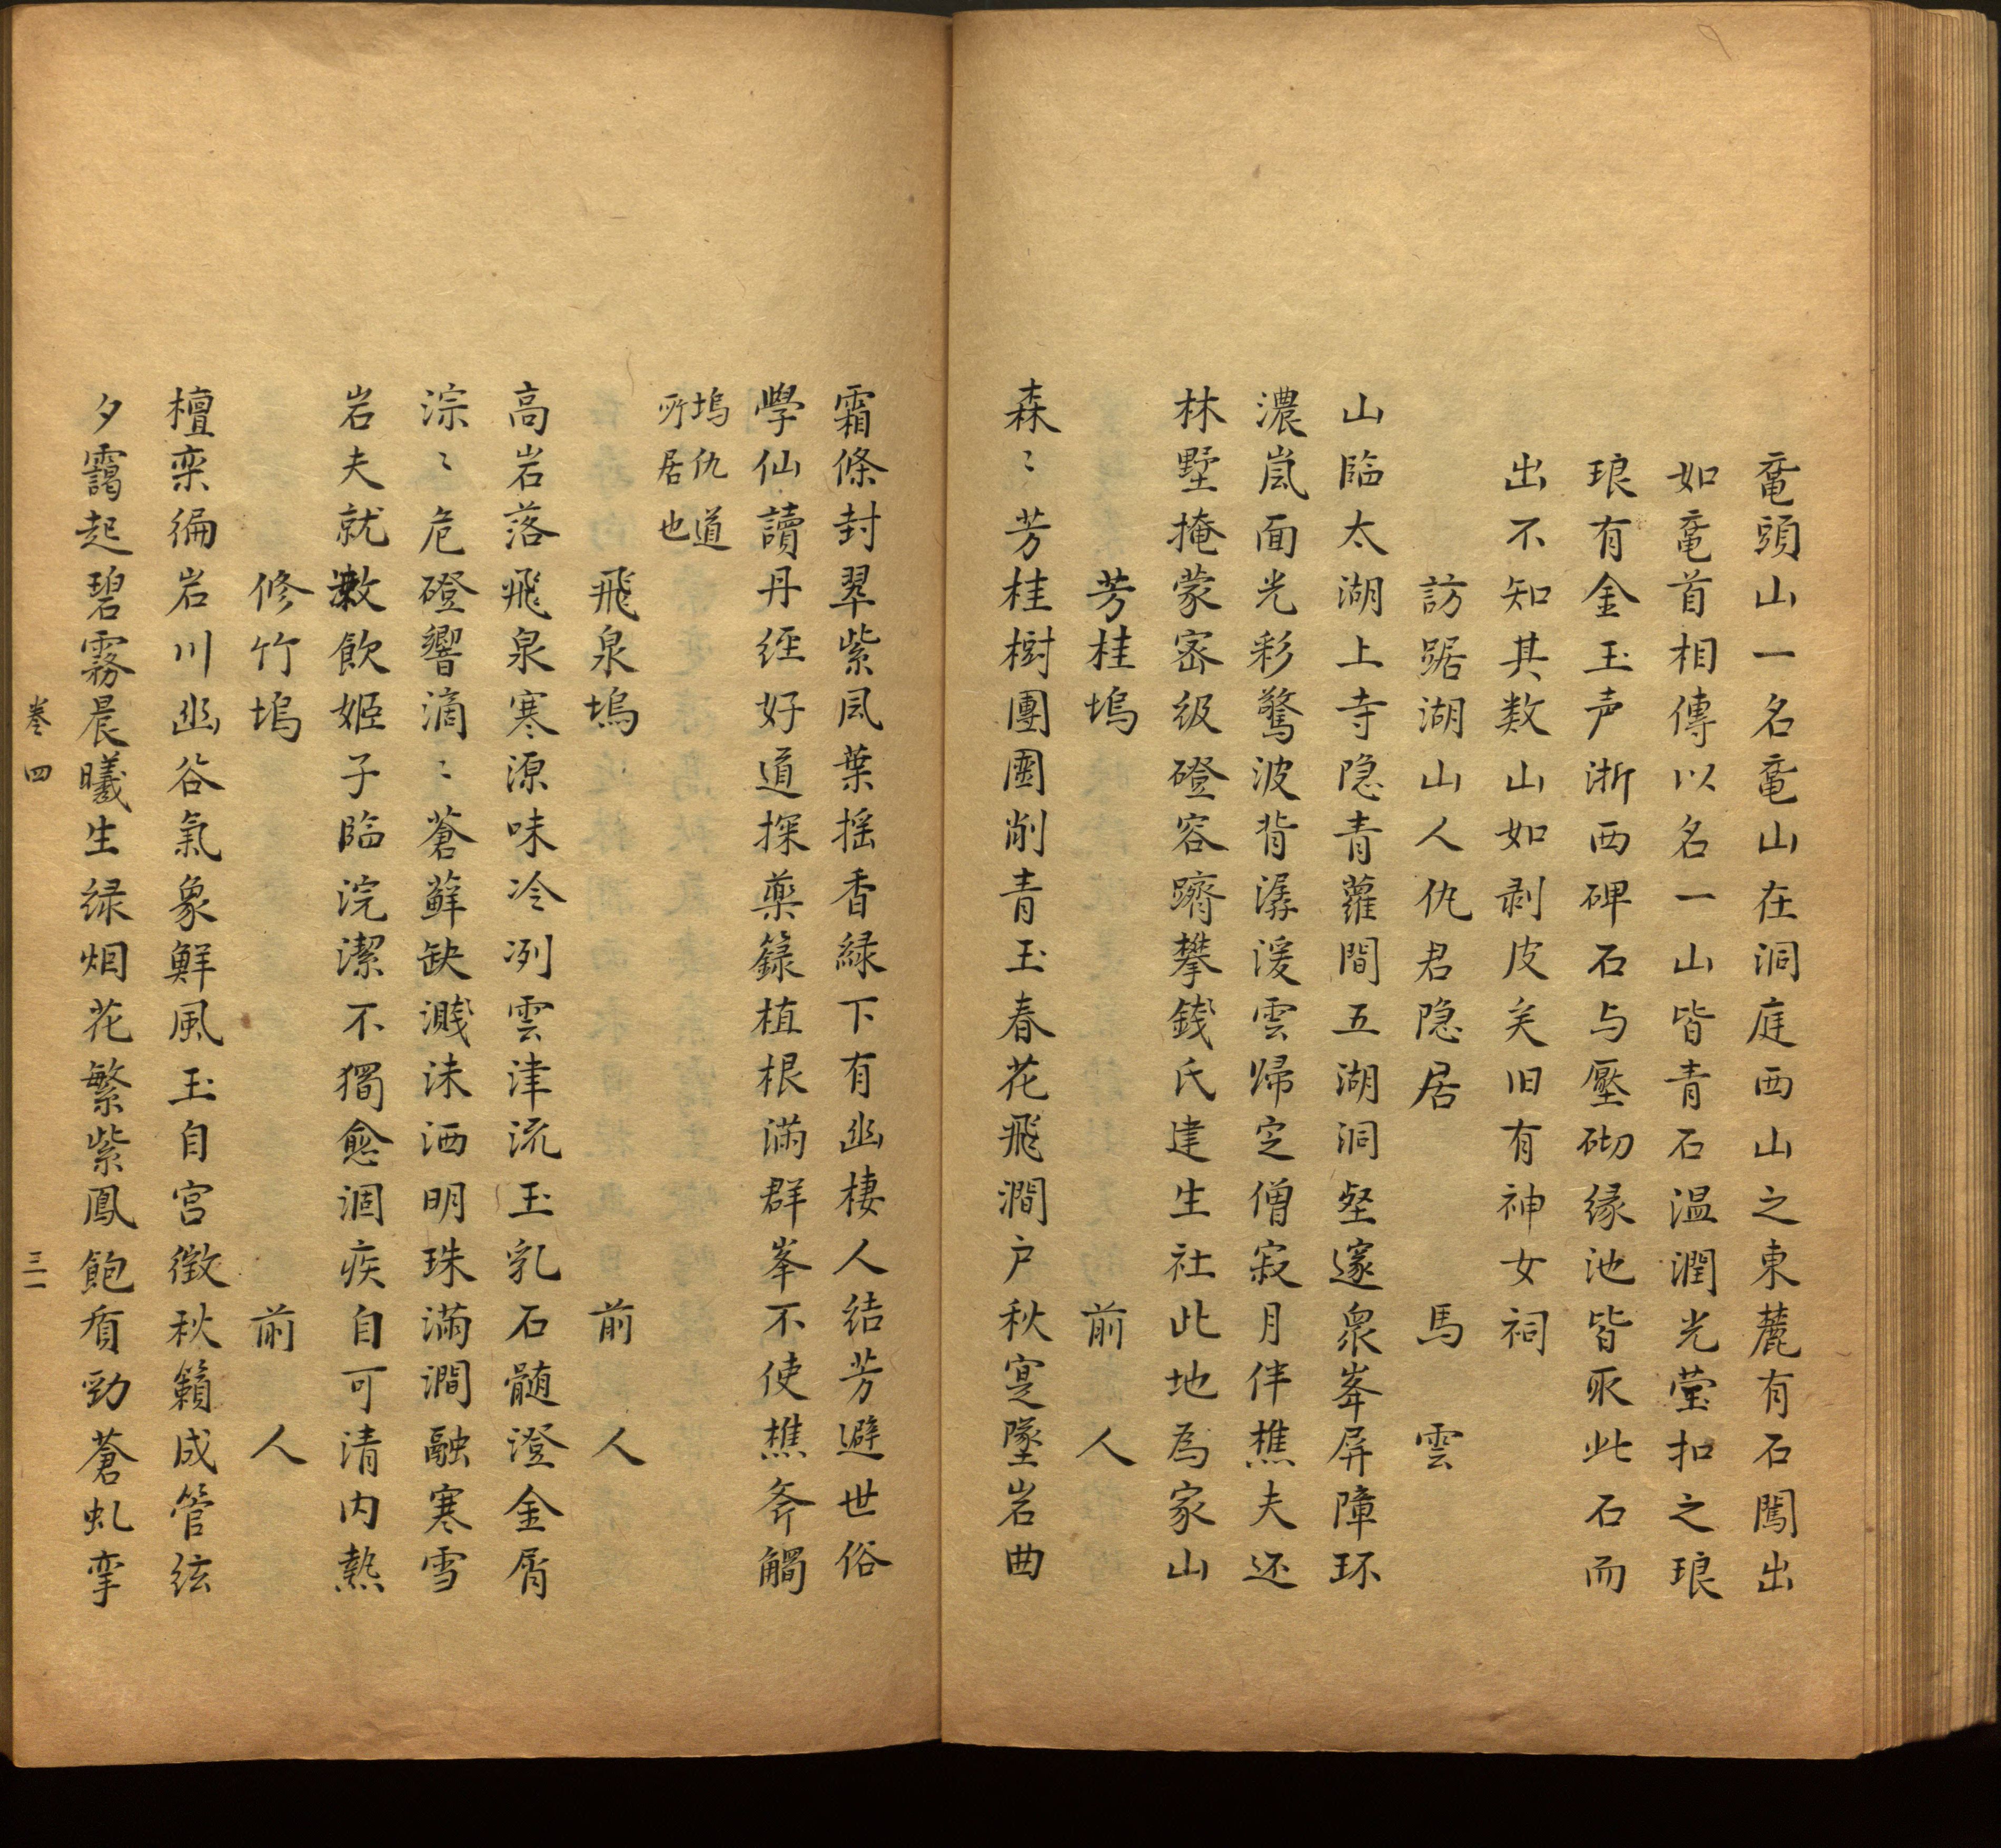 黿頭山一名黿山在洞庭西山之東麓有石闖出
如黿首相傳以名一山皆青石温潤光莹扣之琅
琅有金玉声浙西碑石与壓砌缘池皆取此石而
出不知其数山如剥皮矣旧有神女祠
訪踞湖山人仇君隐居 馬雲
山臨太湖上寺隐青蘿間五湖洞壑邃衆峯屏障环
濃嵐面光彩驚波背潺湲雲歸定僧寂月伴樵夫还
林墅掩蒙密级磴容躋攀錢氏建生社此地為家山
芳桂塢 前人
森〻芳桂樹團圞削青玉春花飛澗户秋寔墜岩曲
霜條封翠紫凨葉摇香緑下有幽棲人结芳避世俗
學仙讀丹经好道探藥籙植根滿群峯不使樵斧觸
塢仇道
所居也
飛泉塢 前人
高岩落飛泉寒源味冷冽雲津流玉乳石髄澄金屑
淙〻危磴響滴〻蒼蘚缺濺沫洒明珠滿澗融寒雪
岩夫就漱飲姬子臨浣潔不獨愈涸疾自可清内熱
修竹塢 前人
檀栾徧岩川幽谷氣象鮮風玉自宫徵秋籟成管絃
夕靄起碧霧晨曦生绿烟花繁紫鳳飽質勁蒼虬挛
卷四 三一